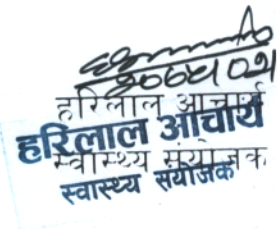 हरिलाल आचार्य
हरिलाल आचार्य
स्वास्थ्य संयोजक
स्वास्थ्य संयोजक